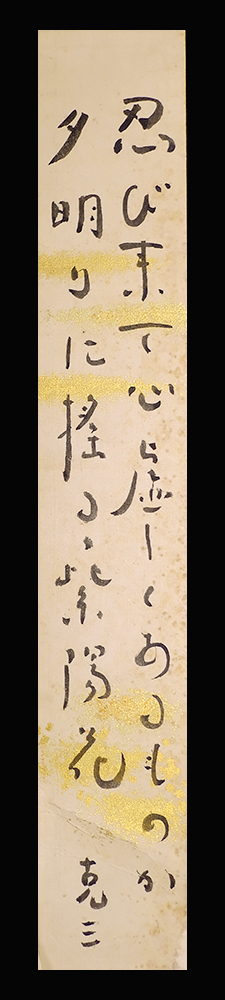 忍び来て心も虚しくあるものか
夕明りに揺るゝ紫陽花
克三